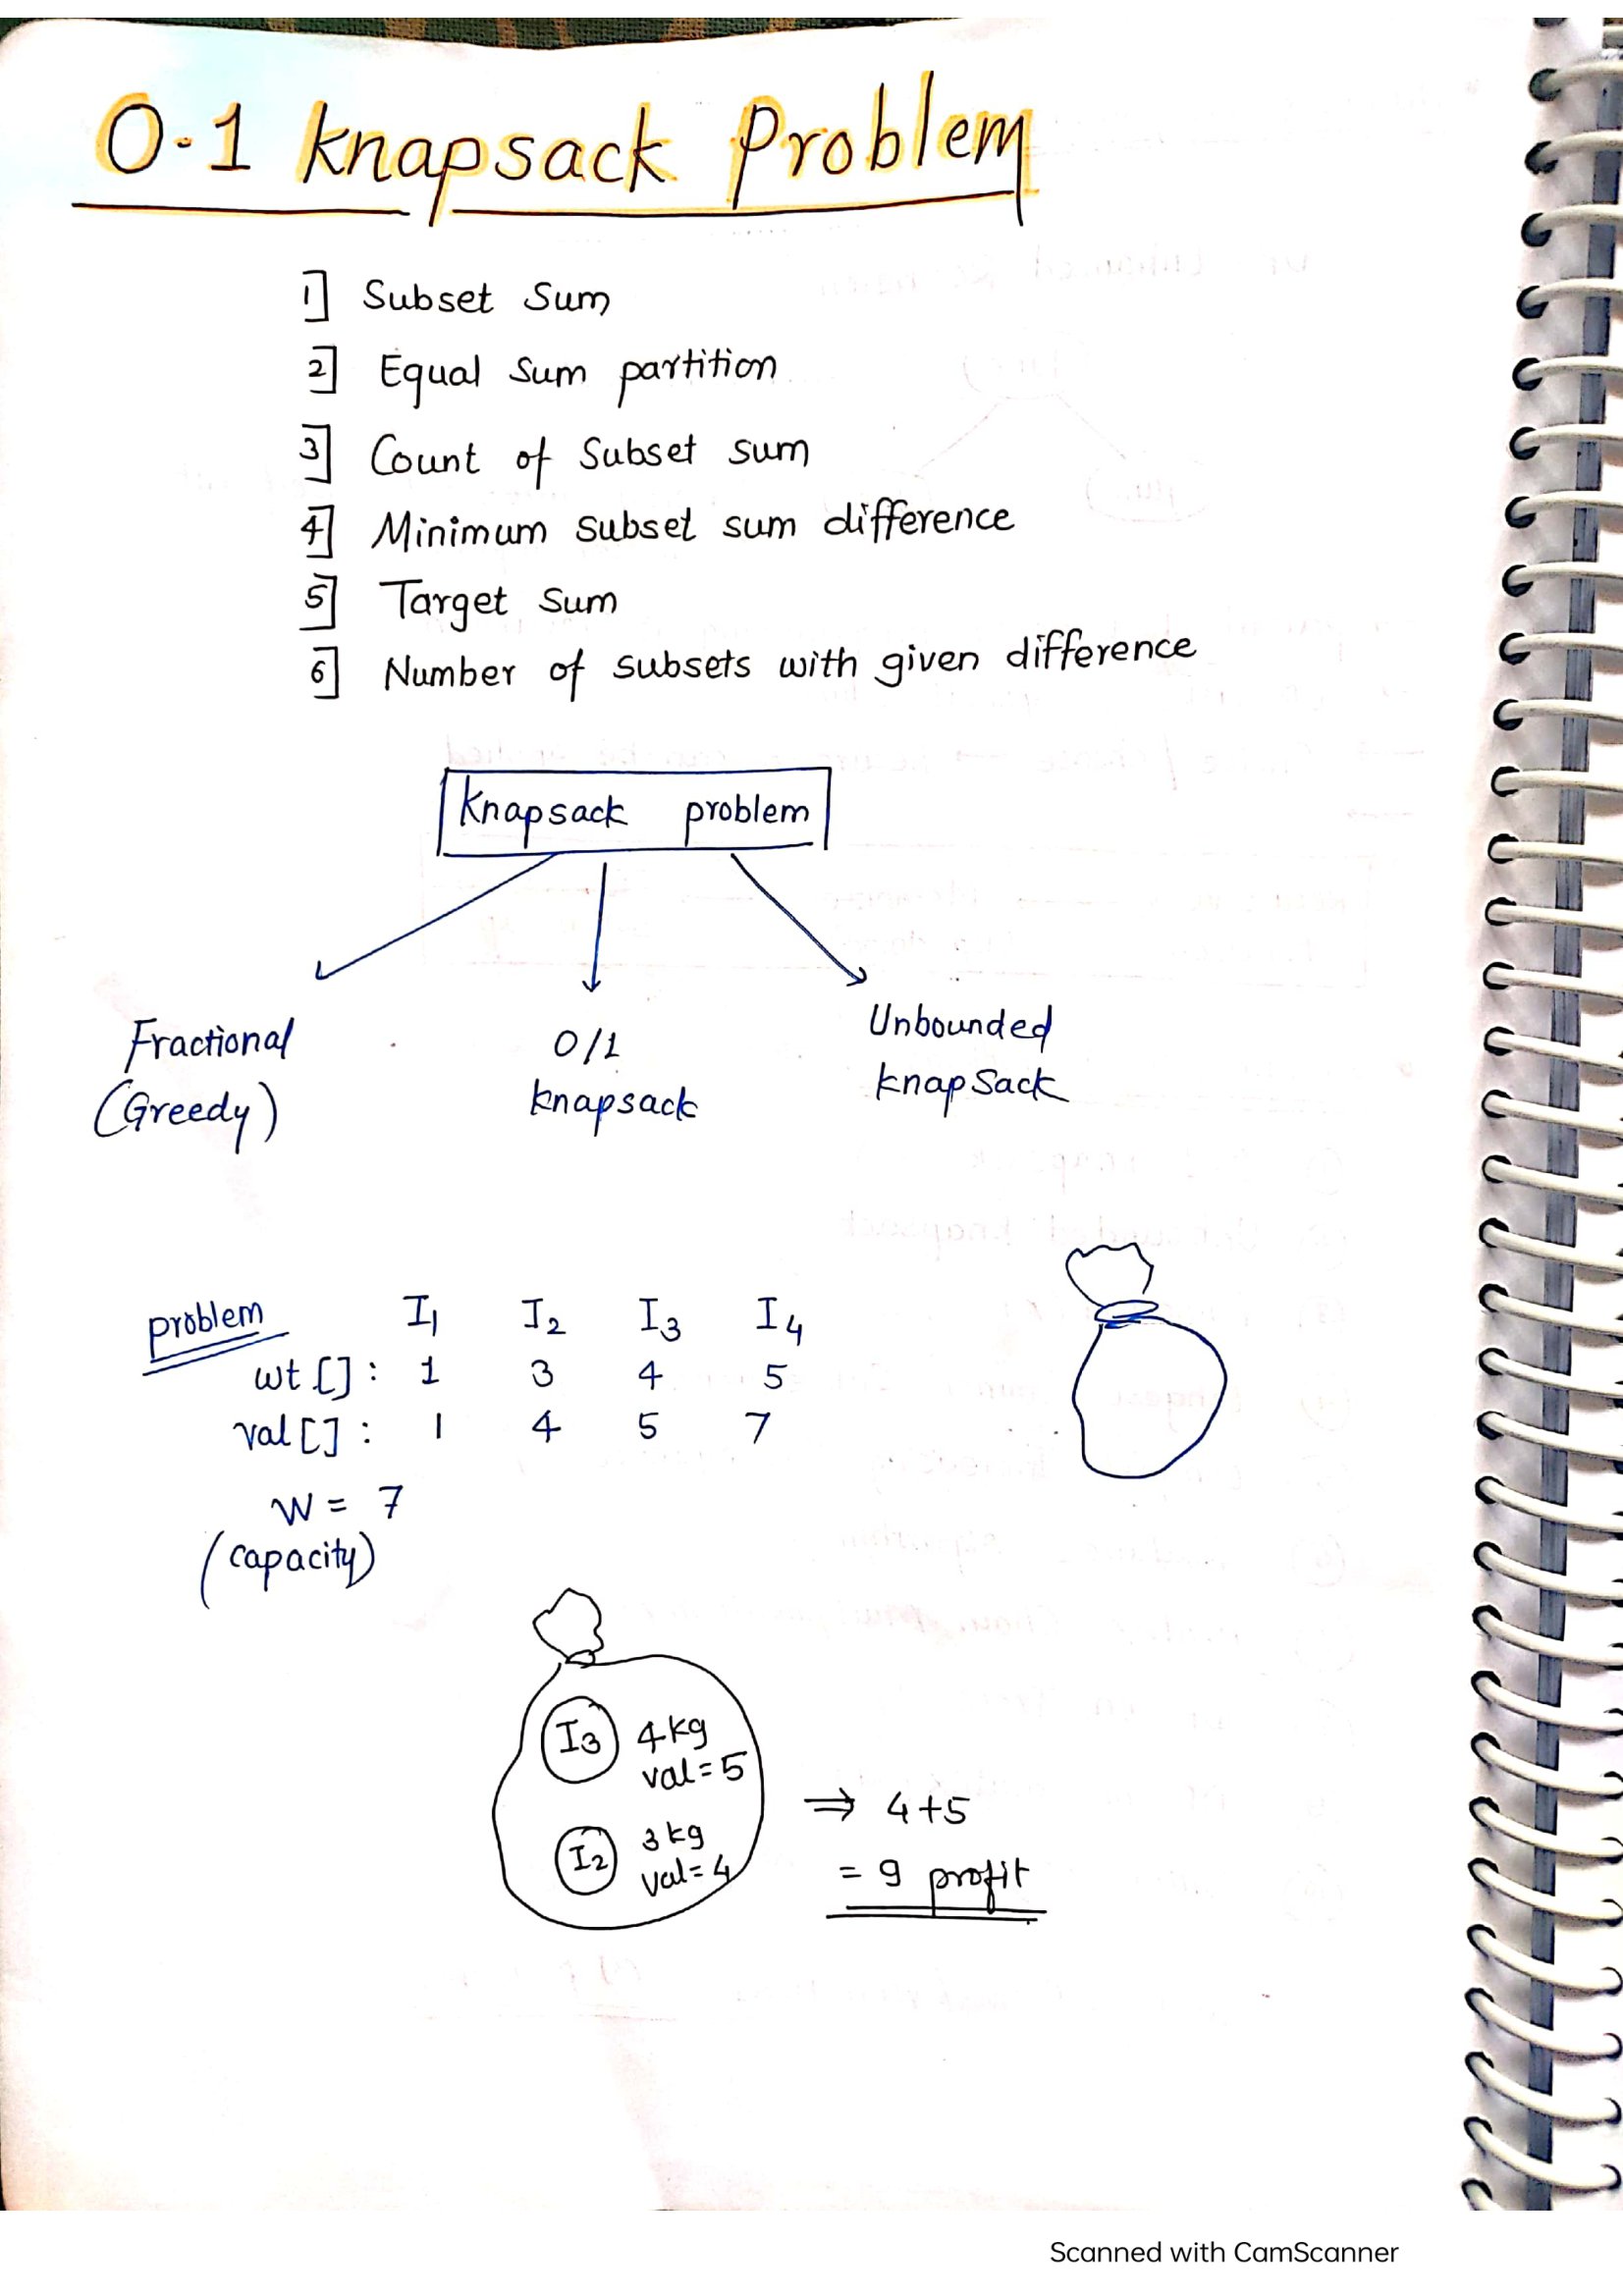 0-1 knapsack Problem
1] Subset Sum
2] Equal Sum partition
3] Count of Subset sum
4] Minimum subset sum difference
5] Target Sum
6] Number of subsets with given difference
knapsack problem
Fractional (Greedy)
0/1 knapsack
Unbounded knapSack
problem I1 I2 I3 I4
wt []: 1 3 4 5
val []: 1 4 5 7
W = 7
(capacity)
I3 4kg
val=5
I2 3kg
val=4
⇒ 4+5
= 9 profit
Scanned with CamScanner